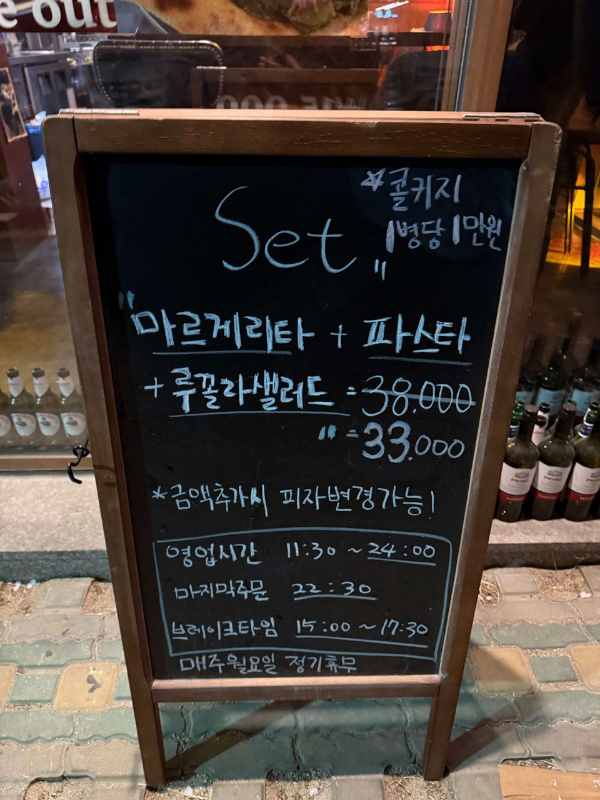 e out
*콜키지
1병당 1만원
"Set"
"마르게리타 + 파스타
+ 루꼴라샐러드 = 38.000
" = 33.000
*금액추가시 피자변경가능!
영업시간 11:30 ~ 24:00
마지막주문 22:30
브레이크타임 15:00 ~ 17:30
매주월요일 정기휴무